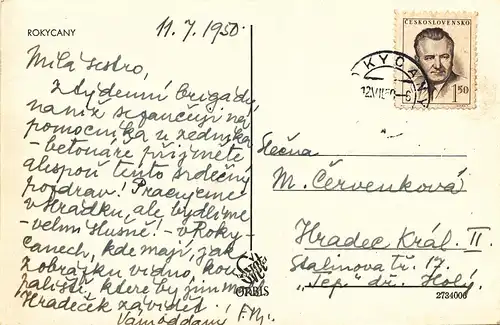 ROKYCANY
11. 7. 1950.
Milá sestro,
z týdenní brigády,
na níž se zaučuji na
pomocníka u zedníka
- betonáře přijměte
alespoň tento srdečný
pozdrav! Pracujeme
v Hrádku, ale bydlíme
- velmi slušně! - v Roky-
canech, kde mají, jak
z obrázku vidno, kou-
paliště, které by jim i
Hradeček záviděl!
Vám oddaný
ORBIS
ČESKOSLOVENSKO
1.50
ROKYCANY
12.VII.50-6
Slečna
M. Červenková
Hradec Král. II
Stalinova tř. 17
"Sep" dr. Holý.
2734006